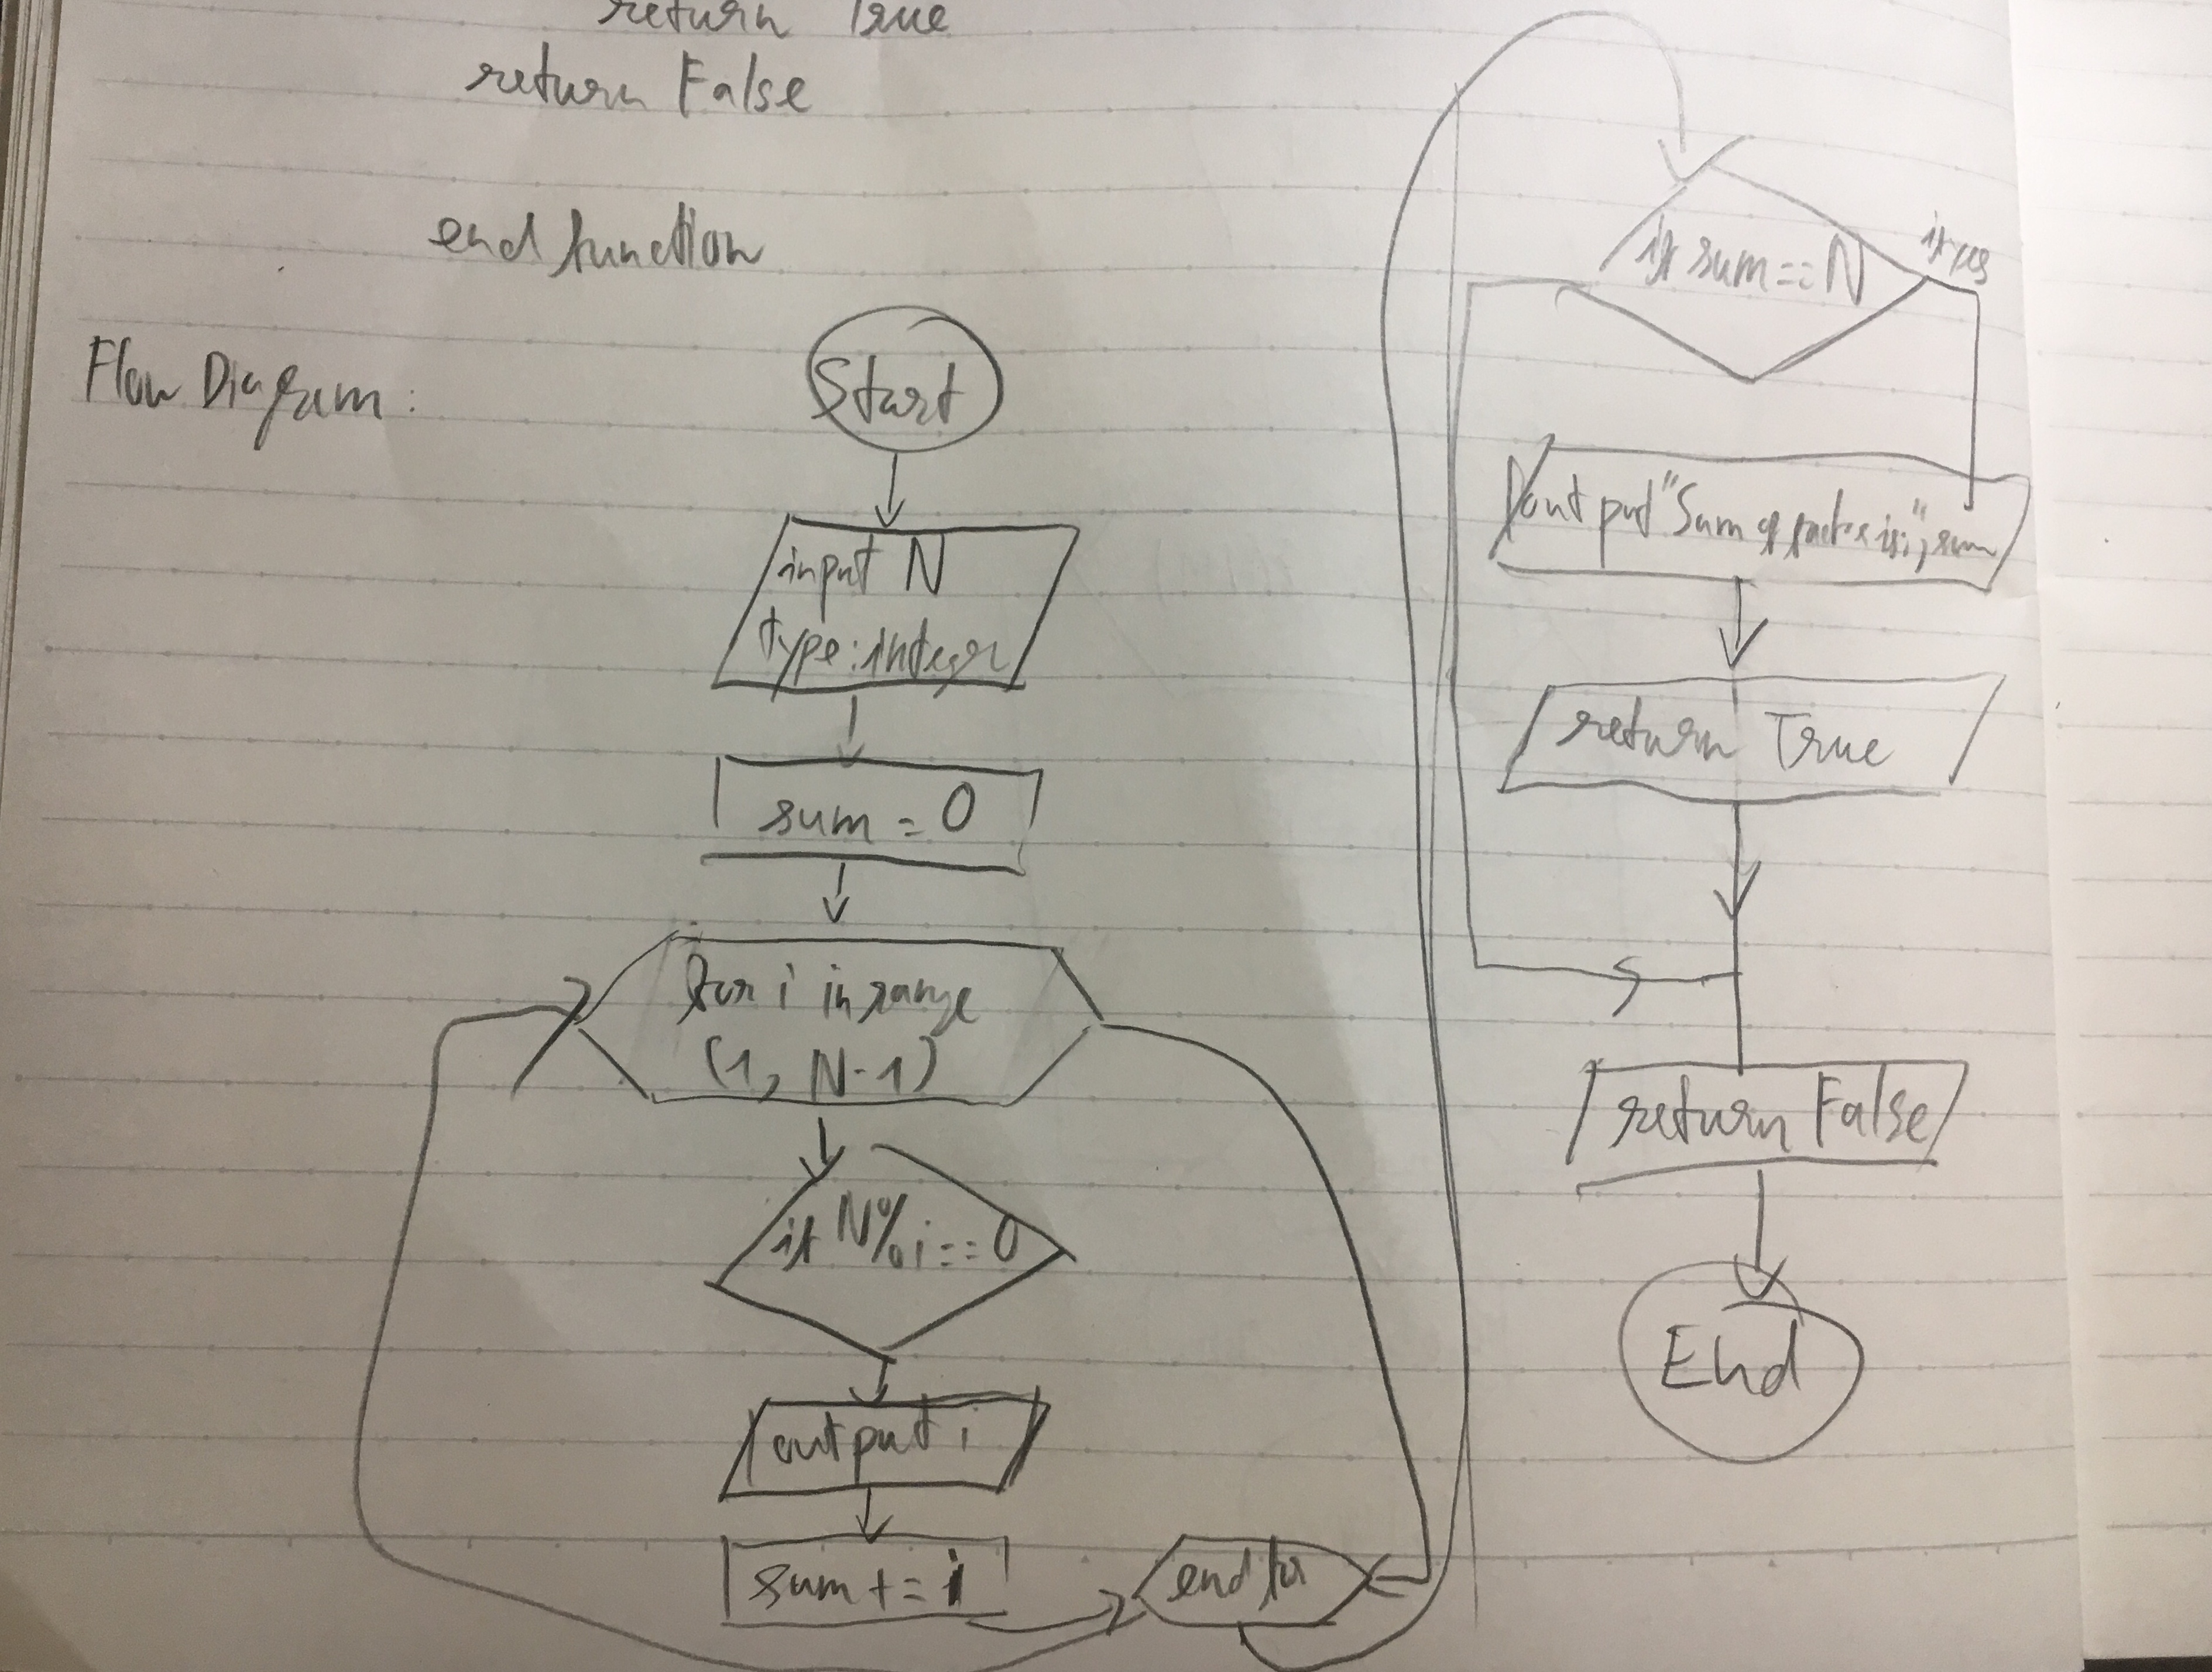 return True
return False
end function
Flow Diagram:
Start
input N
type: integer
sum = 0
for i in range
(1, N-1)
if N%i == 0
output i
sum += i
end for
if sum == N
if yes
output "Sum of factor is:", sum
return True
return False
End